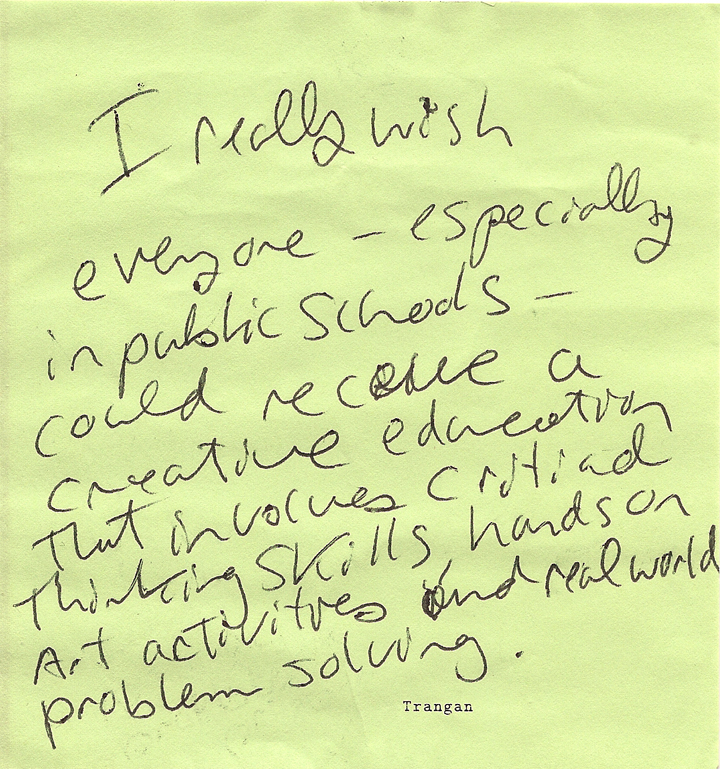 I really wish
everyone - especially
in public schools -
could receive a
creative education
that involves critical
thinking skills hands on
Art activities and real world
problem solving.
Trangan